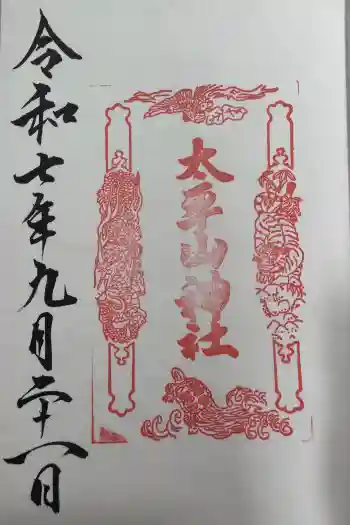 太平山神社
令和七年九月二十八日